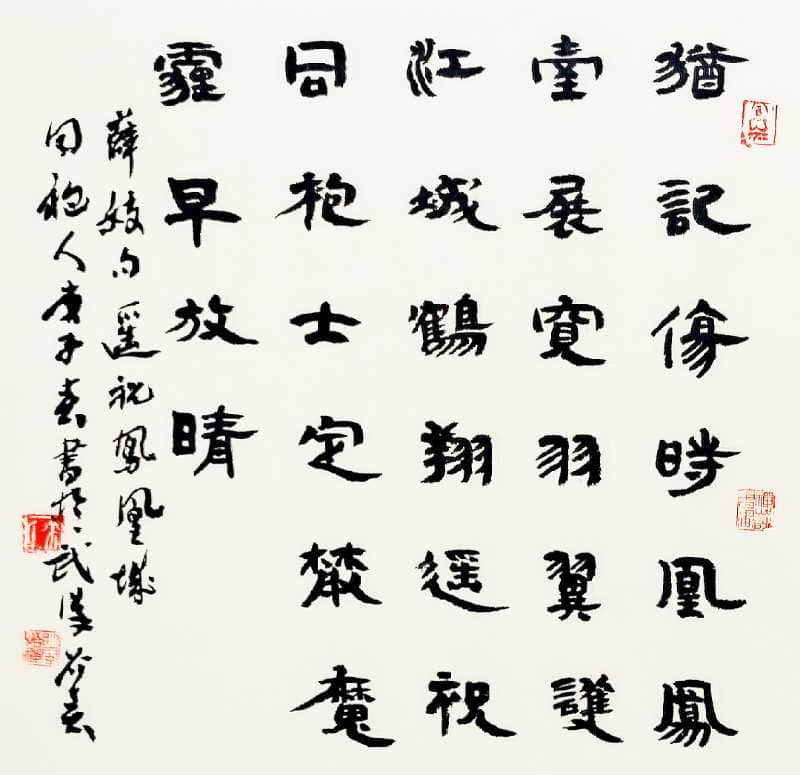 猶記時凰鳳
臺展寬羽翼護
江城鶴翔遥祝
同袍士定魔
霾早放晴
薛句遥祝鳳凰城
同袍人庚子春書於武漢